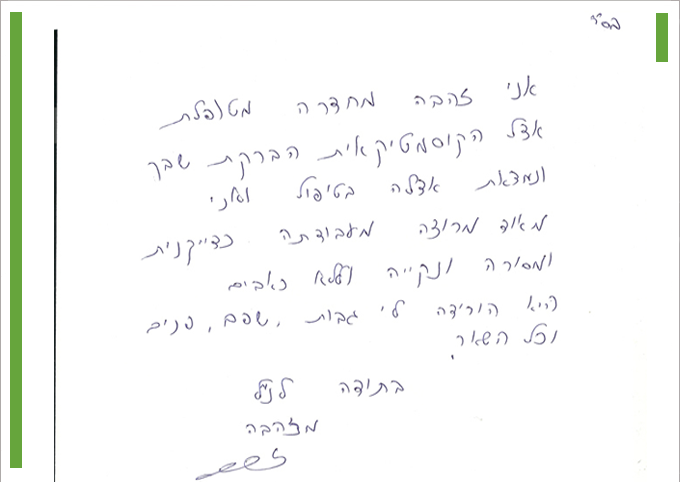 בס"ד
אני זהבה מחדרה מטופלת
אצל הקוסמטיקאית הברקת שבך
ונמצאת אצלה בטיפול ואני
מאוד מרוצה מעבודתה כדייקנית
ומסורה ונקייה וללא כאבים
היא הורידה לי גבות, שפם, פנים
וכל השאור.
בתודה לנ"ל
מזהבה